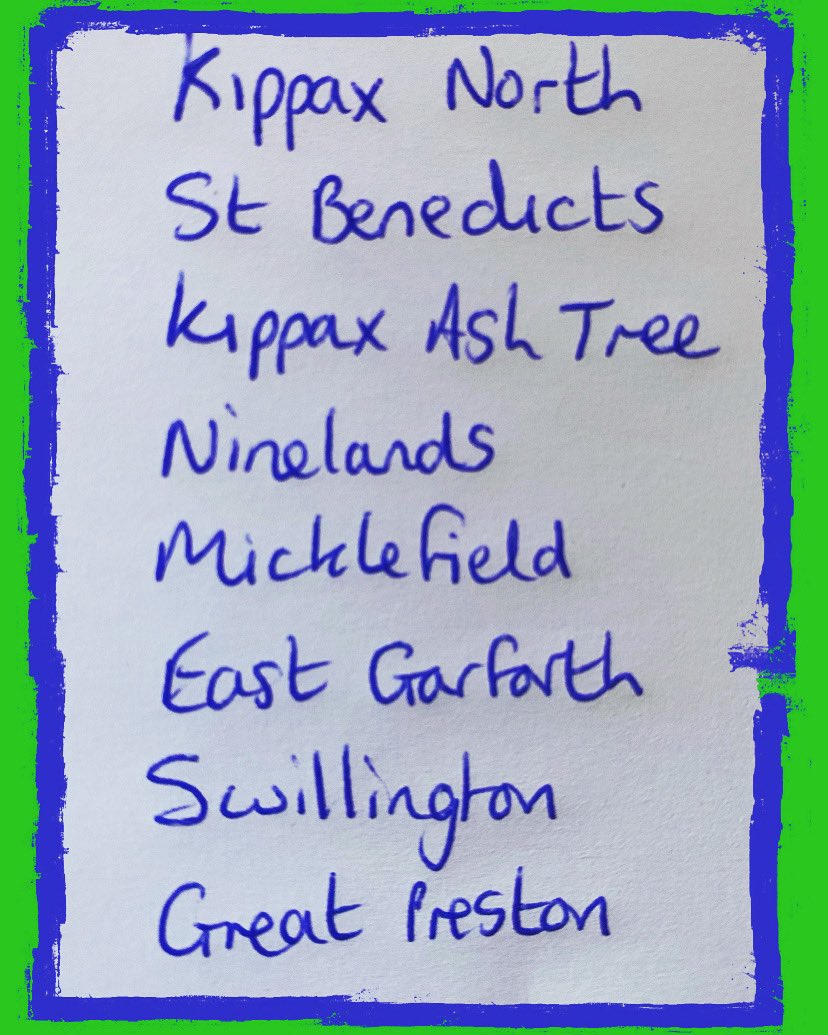 Kippax North
St Benedicts
Kippax Ash Tree
Ninelands
Micklefield
East Garforth
Swillington
Great Preston